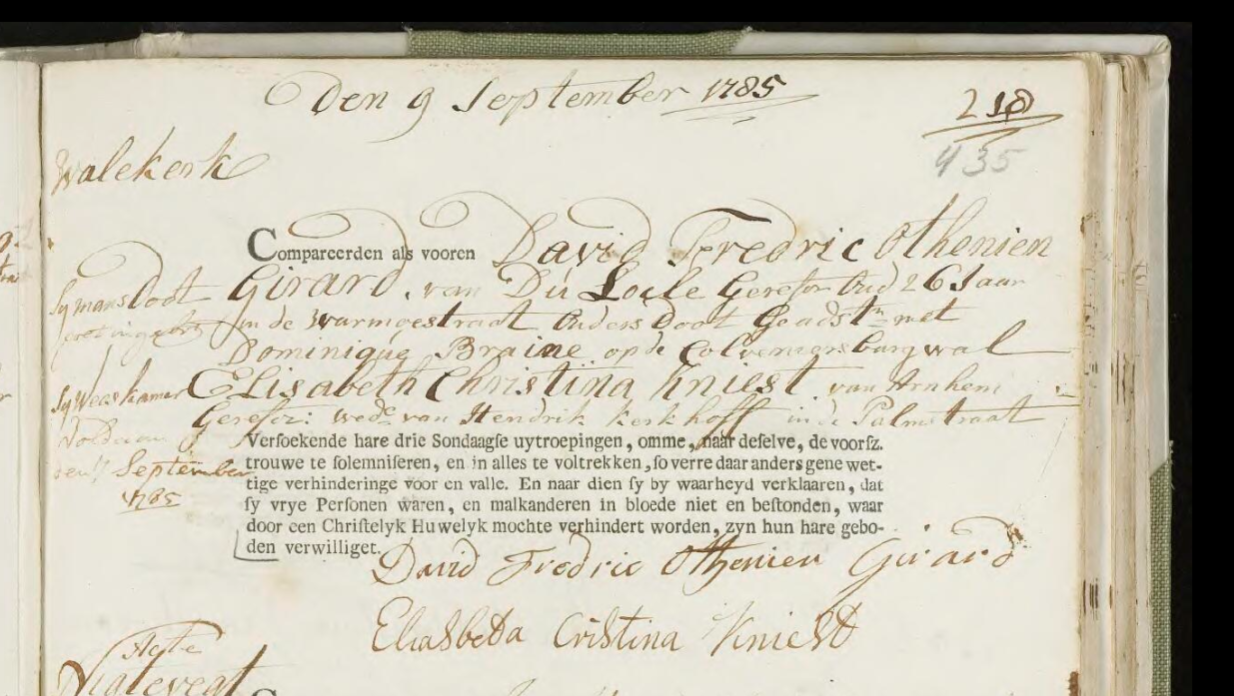 Den 9 September 1785
218
435
Walekerk
Compareerden als vooren David Fredric Othenien
Girard, van Du Locle Gerefor Oud 26 Jaar
in de Warmoestraat Ouders Doot Geadst. met
Dominique Braine op de Colveniersburgwal
Elisabeth Christina Kniest van Arnhem
Gerefor: wede van Hendrik Kerkhoff in de Palmstraat
Sy mans Doot
Sy Weeskamer
Voldaan
den September
1785
Versoekende hare drie Sondaagse uytroepingen, omme, naar deselve, de voorsz.
trouwe te solemniseren, en in alles te voltrekken, so verre daar anders gene wet-
tige verhinderinge voor en valle. En naar dien sy by waarheyd verklaaren, dat
sy vrye Personen waren, en malkanderen in bloede niet en bestonden, waar
door een Christelyk Huwelyk mochte verhindert worden, zyn hun hare gebo-
den verwilliget.
David Fredric Othenien Girard
Eliasbeta Cristina Kniest
Acte